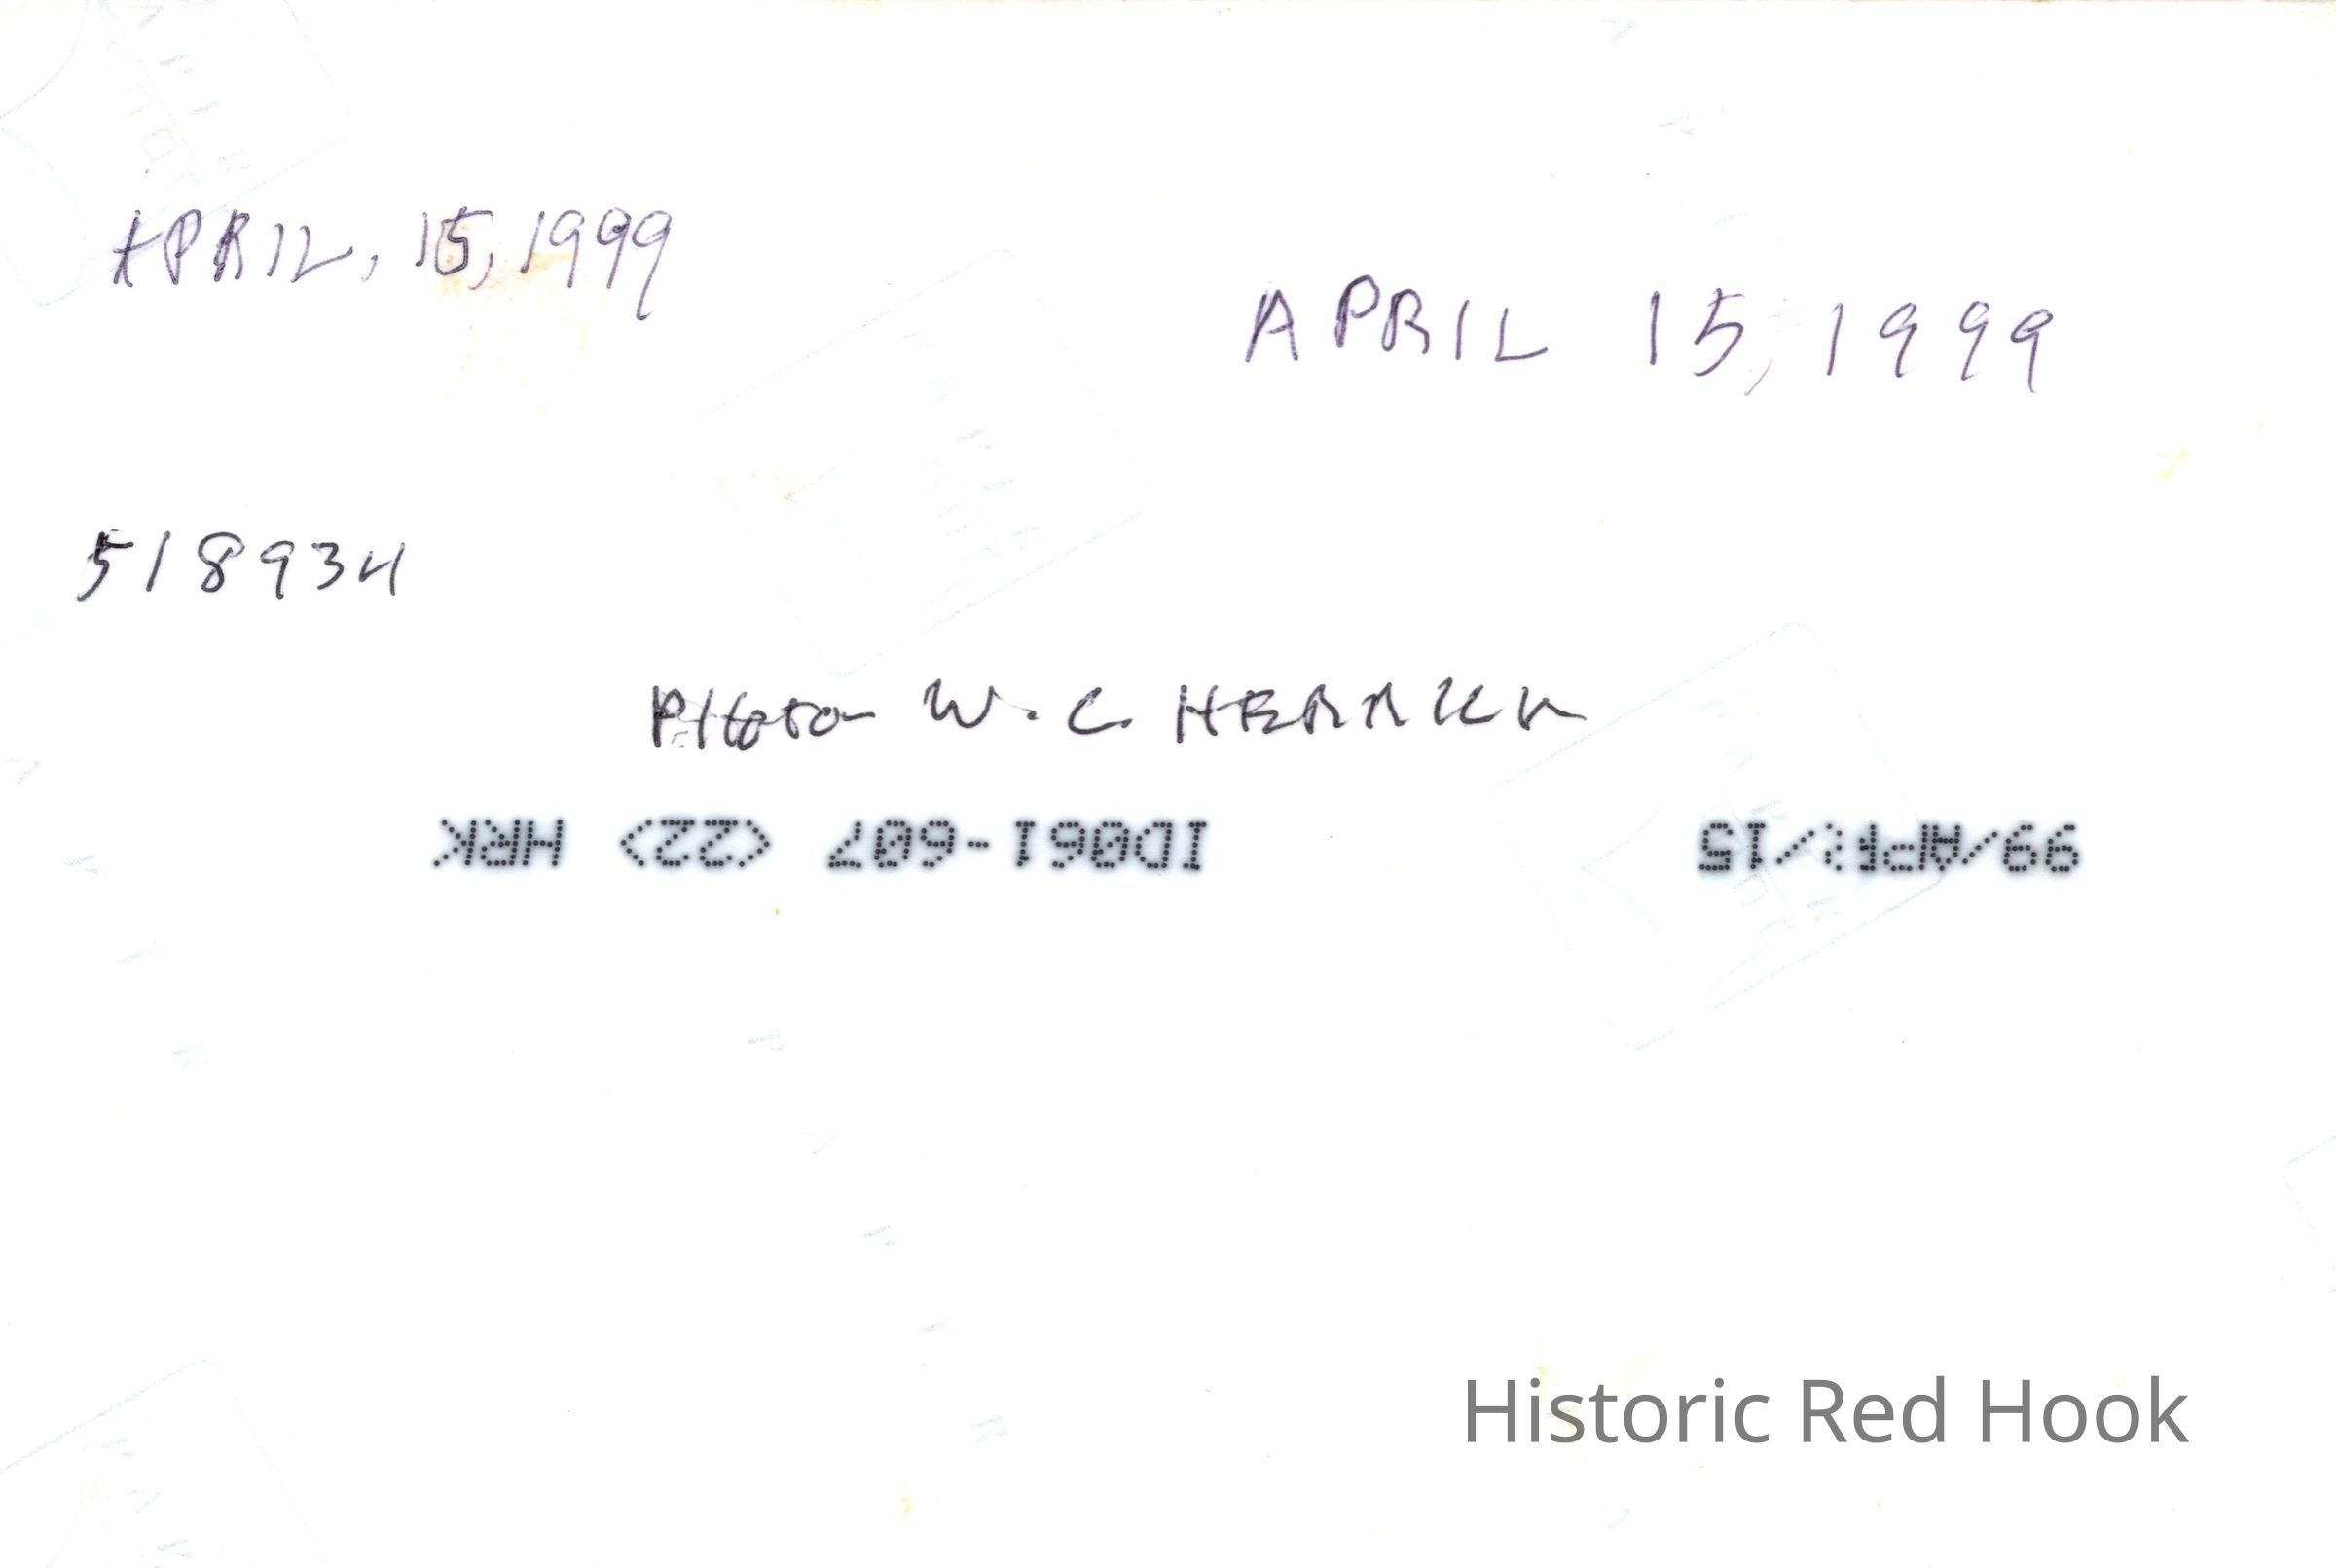 APRIL, 15, 1999
APRIL 15, 1999
518934
Photo W. C HERRICK
99/APR/15 ID061-607 <22> HRK
Historic Red Hook